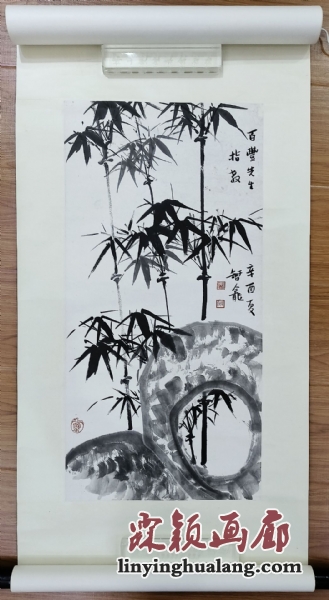 百豐先生
指教
辛酉夏
智龕
霖颖画廊
linyinghualang.com